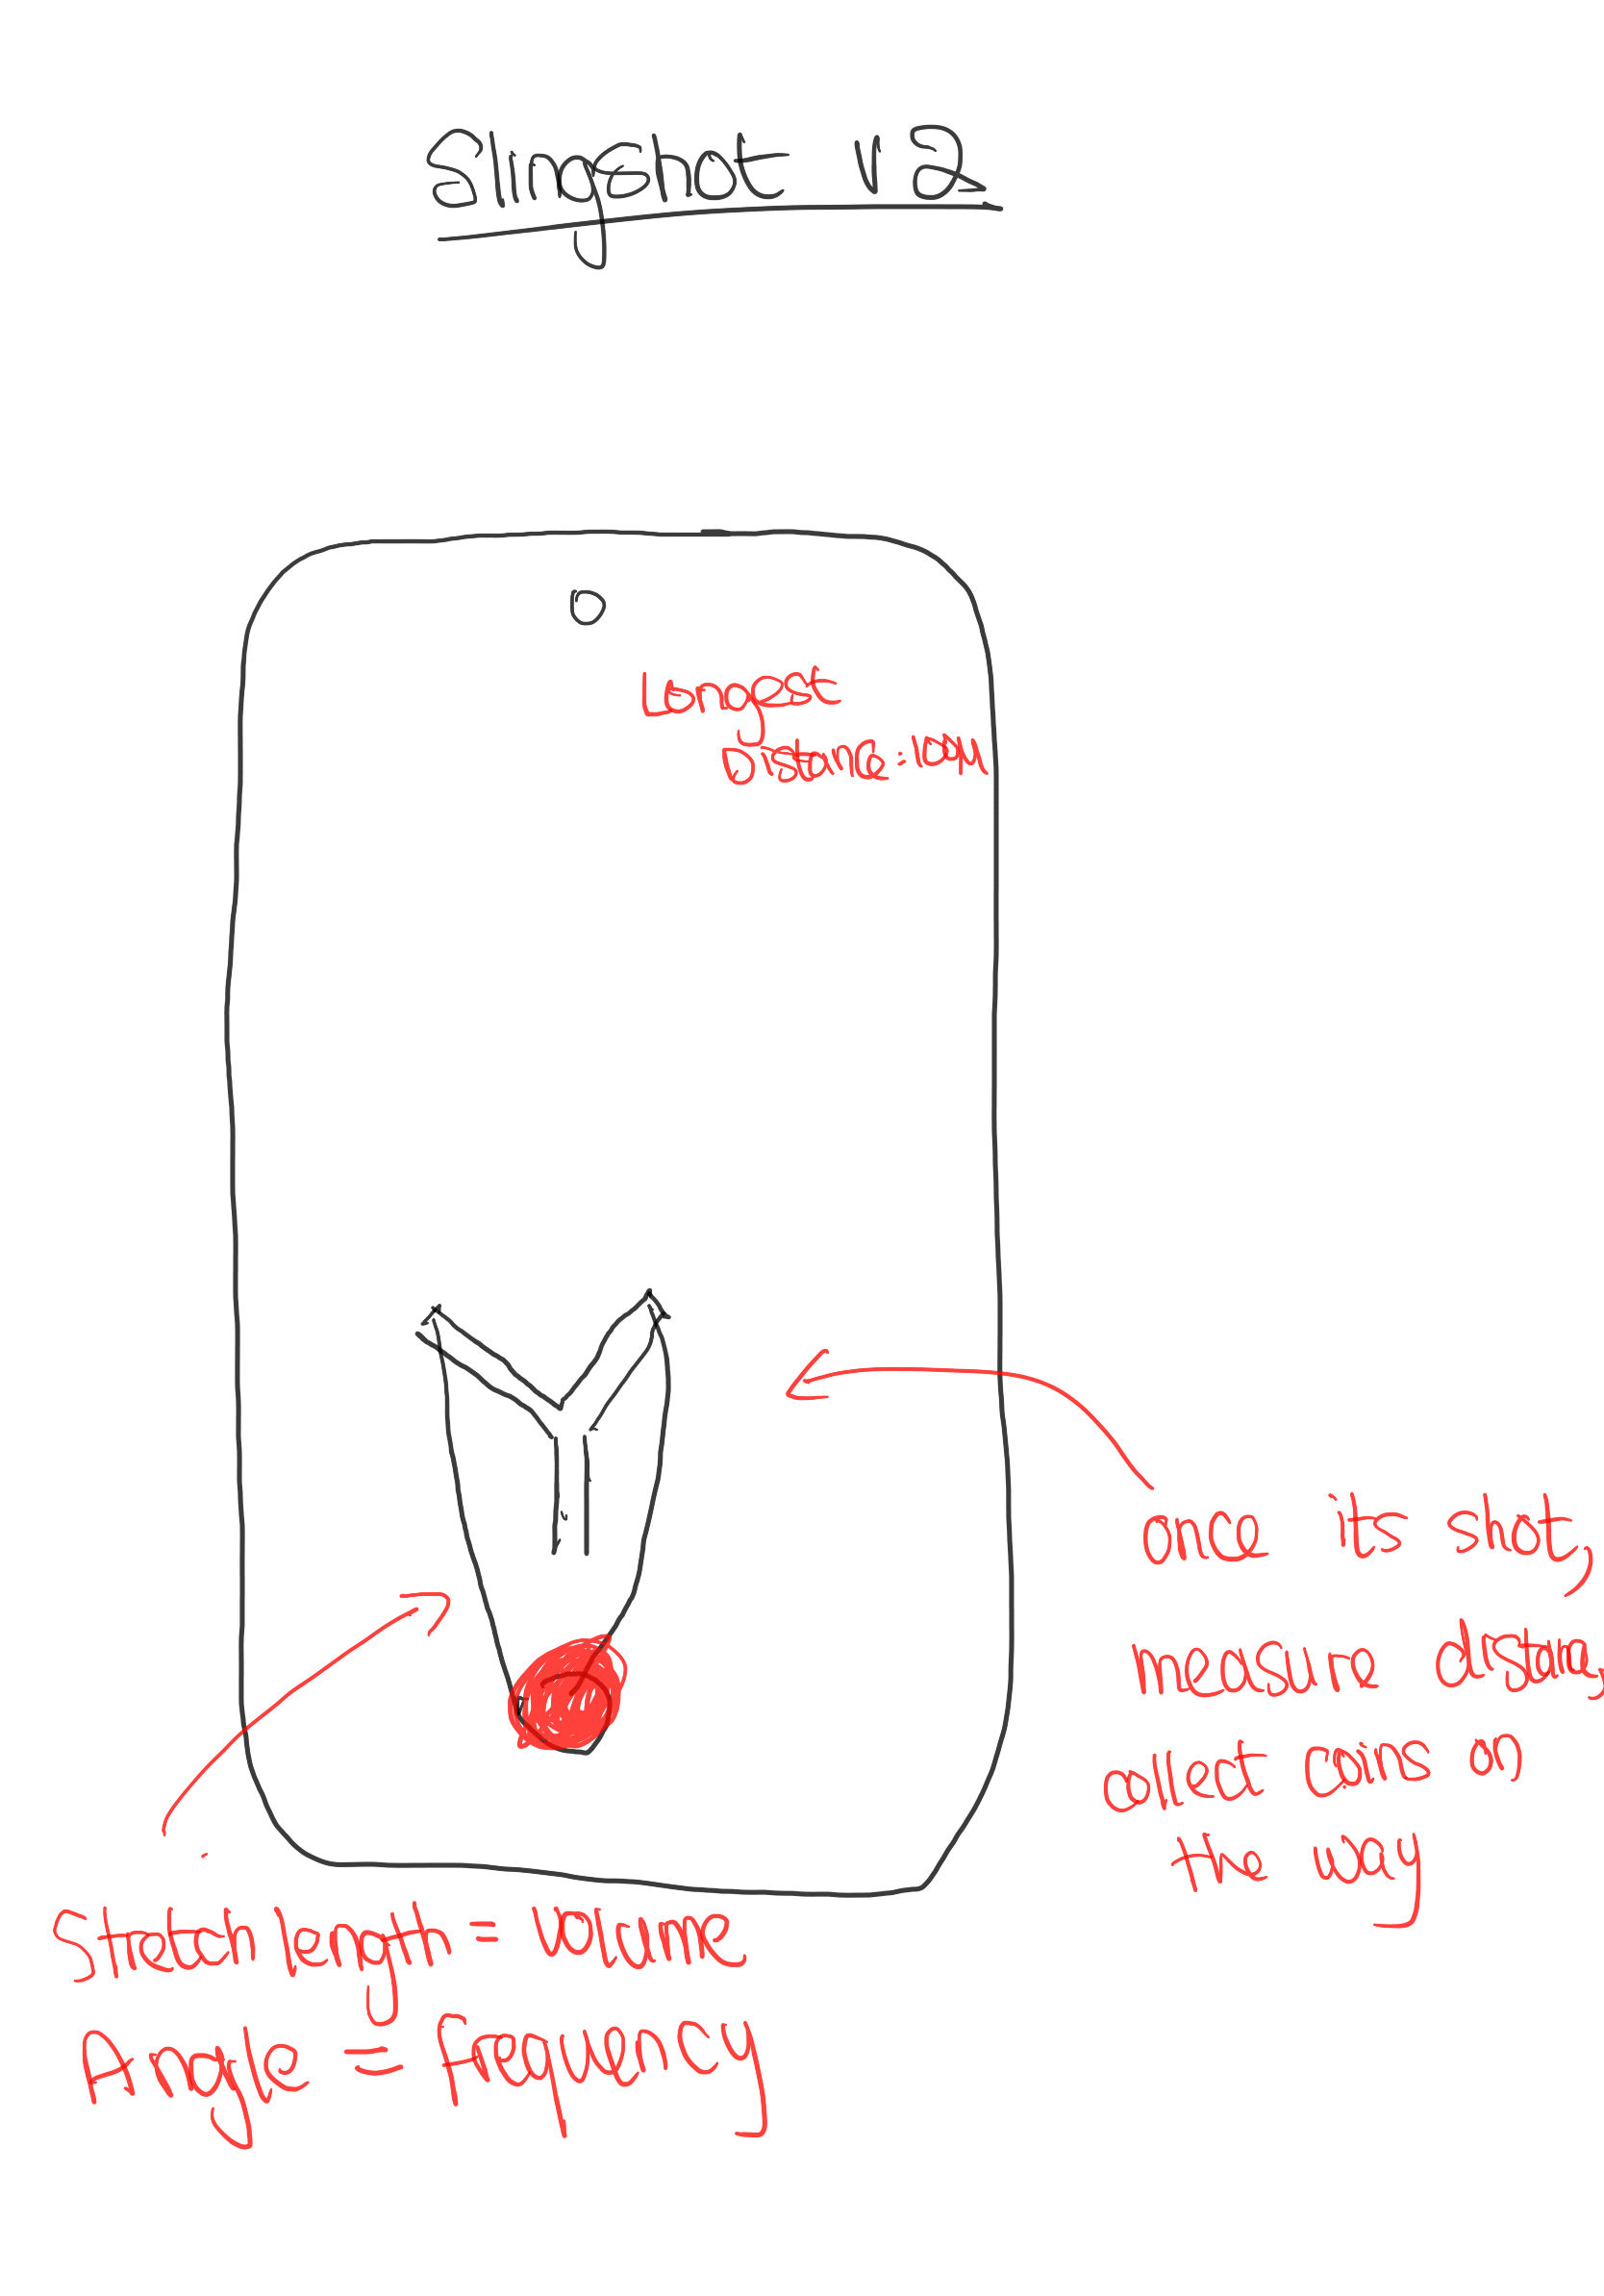 Slingshot V2
Longest
Distance:
once its shot,
measure distance,
collect coins on
the way
Stretch length = volume
Angle = frequency